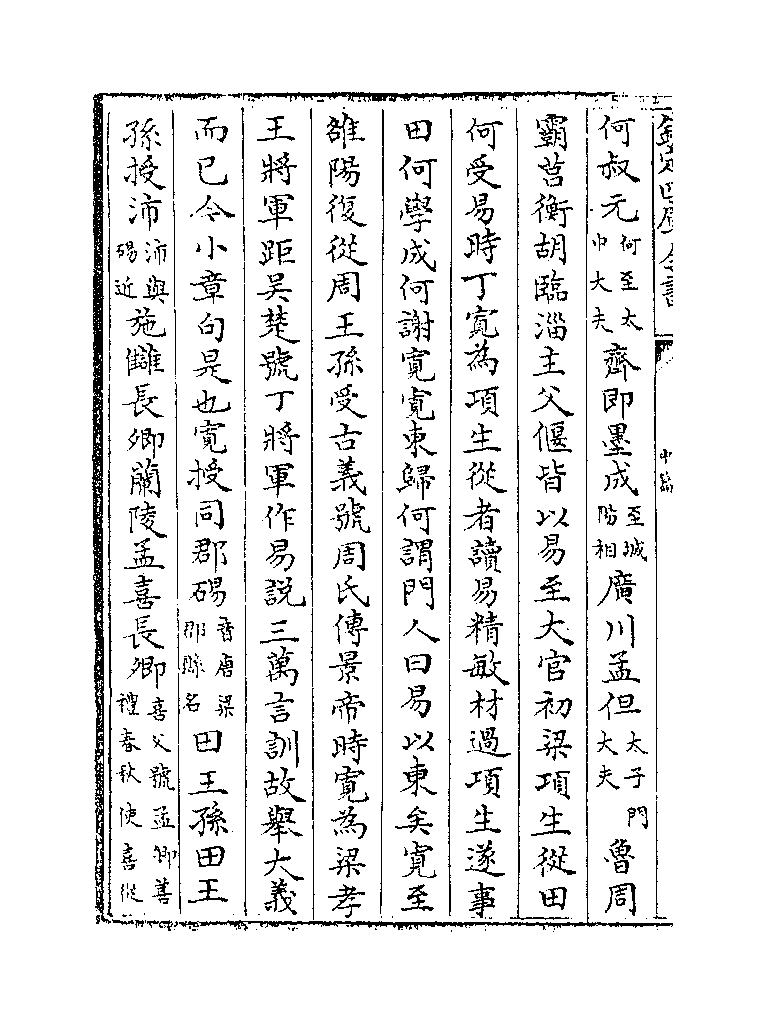 欽定四庫全書
何叔元何至太中大夫齊即墨成至城陽相廣川孟但太子門大夫魯周
霸莒衡胡臨淄主父偃皆以易至大官初梁項生從田
何受易時丁寬為項生從者讀易精敏材過項生遂事
田何學成何謝寬寬東歸何謂門人曰易以東矣寬至
雒陽復從周王孫受古義號周氏傳景帝時寬為梁孝
王將軍距吳楚號丁將軍作易説三萬言訓故舉大義
而已今小章句是也寬授同郡碭音唐梁郡縣名田王孫田王
孫授沛沛與碭近施讎長卿蘭陵孟喜長卿喜父號孟卿善禮春秋使喜從